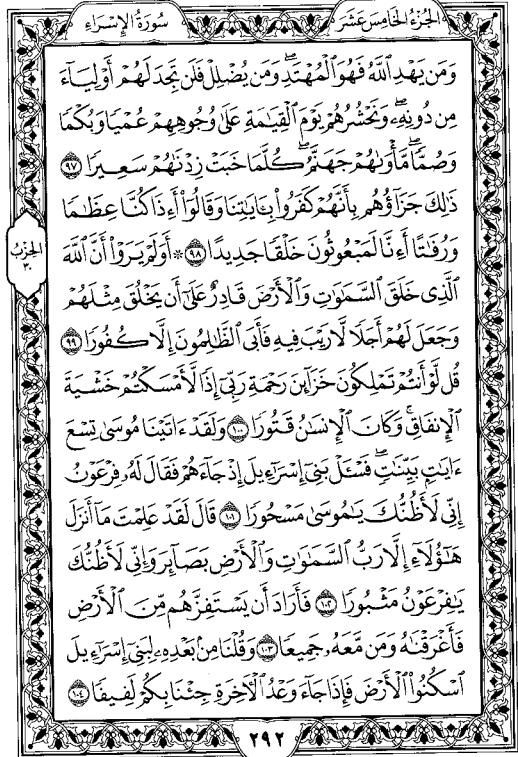 الجزء الخامس عشر
سورة الإسراء
وَمَن يَهْدِ ٱللَّهُ فَهُوَ ٱلْمُهْتَدِۖ وَمَن يُضْلِلْ فَلَن تَجِدَ لَهُمْ أَوْلِيَآءَ
مِن دُونِهِۦۖ وَنَحْشُرُهُمْ يَوْمَ ٱلْقِيَٰمَةِ عَلَىٰ وُجُوهِهِمْ عُمْيًا وَبُكْمًا
وَصُمًّاۖ مَّأْوَىٰهُمْ جَهَنَّمُۖ كُلَّمَا خَبَتْ زِدْنَٰهُمْ سَعِيرًا ٩٧
ذَٰلِكَ جَزَآؤُهُم بِأَنَّهُمْ كَفَرُوا۟ بِـَٔايَٰتِنَا وَقَالُوٓا۟ أَءِذَا كُنَّا عِظَٰمًا
وَرُفَٰتًا أَءِنَّا لَمَبْعُوثُونَ خَلْقًا جَدِيدًا ٩٨ * أَوَلَمْ يَرَوْا۟ أَنَّ ٱللَّهَ
الحزب ٣٠
ٱلَّذِى خَلَقَ ٱلسَّمَٰوَٰتِ وَٱلْأَرْضَ قَادِرٌ عَلَىٰٓ أَن يَخْلُقَ مِثْلَهُمْ
وَجَعَلَ لَهُمْ أَجَلًا لَّا رَيْبَ فِيهِ فَأَبَى ٱلظَّٰلِمُونَ إِلَّا كُفُورًا ٩٩
قُل لَّوْ أَنتُمْ تَمْلِكُونَ خَزَآئِنَ رَحْمَةِ رَبِّىٓ إِذًا لَّأَمْسَكْتُمْ خَشْيَةَ
ٱلْإِنفَاقِۚ وَكَانَ ٱلْإِنسَٰنُ قَتُورًا ١٠٠ وَلَقَدْ ءَاتَيْنَا مُوسَىٰ تِسْعَ
ءَايَٰتٍۭ بَيِّنَٰتٍۖ فَسْـَٔلْ بَنِىٓ إِسْرَٰٓءِيلَ إِذْ جَآءَهُمْ فَقَالَ لَهُۥ فِرْعَوْنُ
إِنِّى لَأَظُنُّكَ يَٰمُوسَىٰ مَسْحُورًا ١٠١ قَالَ لَقَدْ عَلِمْتَ مَآ أَنزَلَ
هَٰٓؤُلَآءِ إِلَّا رَبُّ ٱلسَّمَٰوَٰتِ وَٱلْأَرْضِ بَصَآئِرَ وَإِنِّى لَأَظُنُّكَ
يَٰفِرْعَوْنُ مَثْبُورًا ١٠٢ فَأَرَادَ أَن يَسْتَفِزَّهُم مِّنَ ٱلْأَرْضِ
فَأَغْرَقْنَٰهُ وَمَن مَّعَهُۥ جَمِيعًا ١٠٣ وَقُلْنَا مِنۢ بَعْدِهِۦ لِبَنِىٓ إِسْرَٰٓءِيلَ
ٱسْكُنُوا۟ ٱلْأَرْضَ فَإِذَا جَآءَ وَعْدُ ٱلْءَاخِرَةِ جِئْنَا بِكُمْ لَفِيفًا ١٠٤
٢٩٢